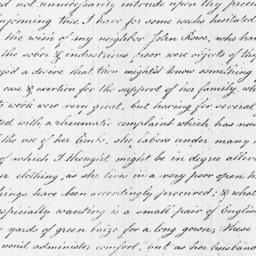 d not unnecessarily intrude upon thy preci
upcoming thee, I have for some weeks hesitated
the wish of my neighbor John Rowe, who hav
the sober & industrious poor were objects of th
sed a desire that thou mightst know something
care & exertion for the support of her family, wh
ts work were very great, but having for several
ted with a rheumatic complaint which has now
the use of her limbs, she labors under many
of which I thought might be in degree allevi
er clothing, as she lives in a very poor open h
hings have been accordingly procured; & what
especially wanting is a small pair of English
yards of green baize for a long gown; these
would administer comfort; but as her husband